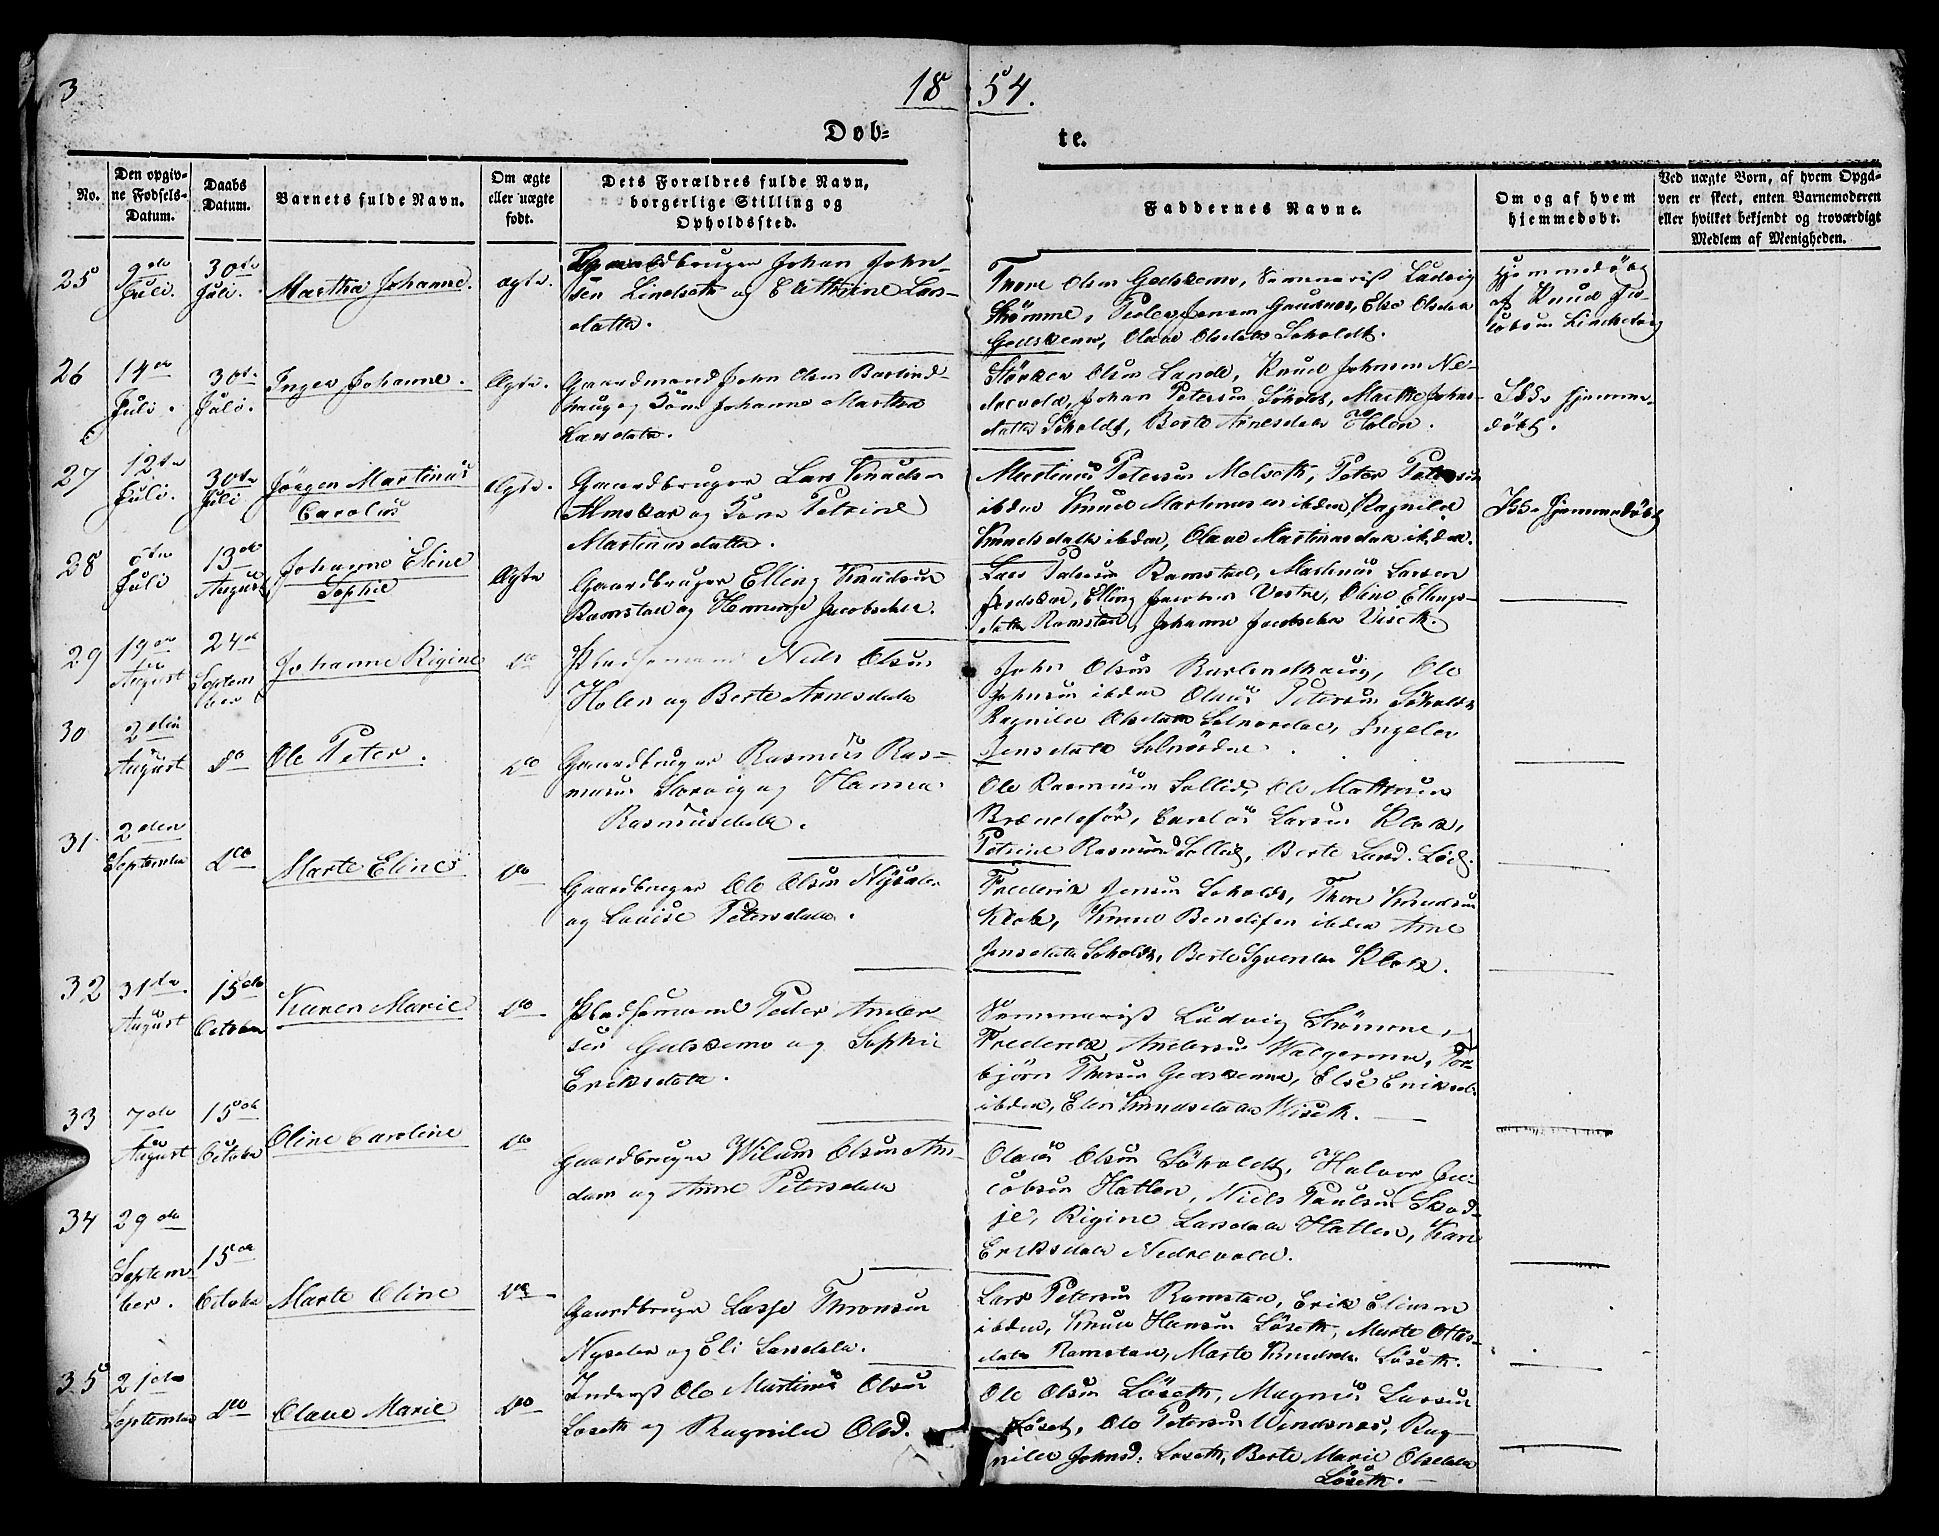 3
18 54.
Dób-
te.
No.
Den opgiv-
ne Fødsels-
Datum.
Daabs
Datum.
Barnets fulde Navn.
Om ægte
eller uægte
født.
Dets Forældres fulde Navn,
borgerlige Stilling og
Opholdssted.
Faddernes Navne.
Om og af hvem
hjemmedøbt.
Ved uægte Børn, af hvem Opga-
ven er skeet, enten Barnemoderen
eller hvilket bekjendt og troværdigt
Medlem af Menigheden.
25
9de
Juli.
30te
Juli.
Martha Johanne.
ægte.
Gaardbruger Johan John-
sen Lindseth og Cathrine Lars-
datter.
Thore Olsen Gjelskemo, Seminarist Ludvig
Strømme, Peder Jensen, Else Olsdatter
Olave Olsdatter Søholdt.
Hjemmedøbt
af Knud Ja-
cobsen
26
14de
Juli.
30te
Juli.
Inger Johanne.
Ægte.
Gaardmand John Olsen Barlind-
haug og Kone Johanne Martha
Larsdatter.
Olsen Lande, Knud Johnsen Ne-
drevold, Johan Petersen Søholt, Marthe Johns-
datter Søholdt, Berte Arnesdatter Holen.
hjemme-
døbt.
27
12te
Juli.
30te
Juli
Jørgen Martinus
Carolus
Ægte.
Gaardbruger Lars Knudsen
Almeskar og Kone Petrine
Martinusdatter.
Martinus Petersen Molseth, Peter Petersen
ibdem Knud Martinussen ibdem, Ragnilde
Knudsdatter ibdem, Olave Martinusdatter ibdem.
hjemmedøbt
28
Juli
13de
August
Johanne Eline
Sophie
Ægte
Gaardbruger Elling Knudsen
Ramstad og Jacobsdtr.
Lars Petersen Ramstad, Martinus Larsen
Elling Jacobsen Vestre, Oline Ellings-
datter Ramstad, Johanne Jacobsdtr Viseth.
29
19de
August
24de
Septem
ber
Johanne Rigine
do
Pladsemand Niels Olsen
Holen og Berte Arnesdatter
John Olsen Barlindhaug, Ole
Johnsen ibdem Olaus Petersen Søholdt
Ragnilde Olsdatter Solnørdal, Ingeber
Jensdatter Solnørdal.
30
2den
August
do
Ole Peter.
do
Gaardbruger Rasmus Ras-
musen Sorvig og Hanna
Rasmusdatter.
Ole Rasmusen Sollid, Ole Mathesen
Brændefør, Carolus Larsen Klok,
Petrine Rasmusd Sollid, Berte Larsd.
31
2den
September
do
Marte Eline
do
Gaardbruger Ole Olsen Nysæter
og Lovise Petersdatter.
Frederik Jensen Søholdt, Thore Knudsen
Klok, Knud Bendiksen ibdem Arne
Jensdatter Søholdt, Berte Syvertsdtr Klok.
32
31te.
August
15de
October
Karen Marie
do
Pladsemand Peder Ander
sen Gjelskemo og Sophie
Eriksdatter.
Seminarist Ludvig Strømme,
Frederik Andersen Walgermo, Tor-
bjørn Thorsen Gjelskemo, Else Eriksd.
ibdem, Elen Knudsdatter Viseth.
33
7de
August
15de
October
Oline Caroline
do
Gaardbruger Wilum Olsen An-
dam og Anne Petersdatter
Olaus Olsen Søholdt, Halvor Ja-
cobsen Hatlen, Niels Paulsen Skod-
je, Rigine Larsdatter Hatlen, Kari
Eriksdatter Nedrevold.
34
29de
Septem-
ber.
15de
October
Marte Oline
do
Gaardbruger Lasse Thronsen
Nyseter og Eli Larsdatter.
Lars Petersen Ramstad, Erik Eliasen
ibdem, Knud Hansen Løseth, Marte Ottes-
datter Ramstad, Marte Knudsdtr Løseth.
35
21de
September
do
Olave Marie
do
Inderst Ole Martinus Olsen
Løseth og Ragnilde Olsd.
Ole Olsen Løseth, Magnus Larsen
Løset, Ole Petersen Vindsnes, Rag-
nilde Johnsd. Løseth, Berte Marie Olsdatter
Løseth.